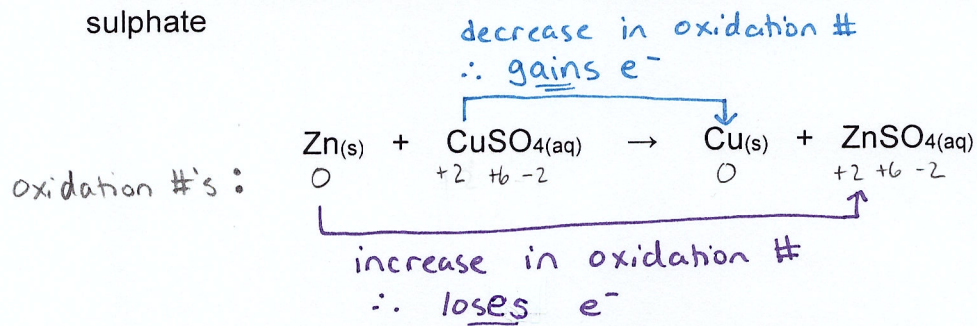 sulphate
decrease in oxidation #
∴ gains e⁻
Zn(s) + CuSO4(aq) → Cu(s) + ZnSO4(aq)
oxidation #'s : 0 +2 +6 -2 0 +2 +6 -2
increase in oxidation #
∴ loses e⁻